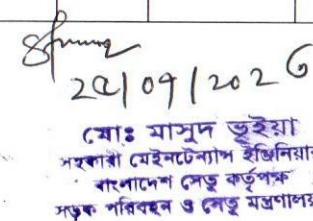 ২৫/০৭/২০২৬
মোঃ মাসুদ ভূইয়া
সহকারী মেইনটেন্যান্স ইঞ্জিনিয়ার
বাংলাদেশ সেতু কর্তৃপক্ষ
সড়ক পরিবহন ও সেতু মন্ত্রণালয়